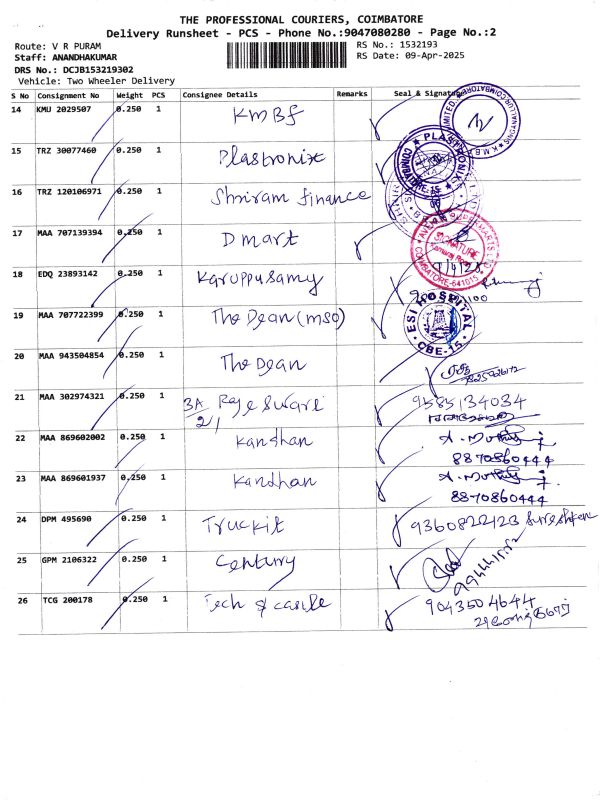 THE PROFESSIONAL COURIERS, COIMBATORE
Delivery Runsheet - PCS - Phone No.:9047080280 - Page No.:2
Route: V R PURAM
RS No.: 1532193
Staff: ANANDHAKUMAR
RS Date: 09-Apr-2025
DRS No.: DCJB153219302
Vehicle: Two Wheeler Delivery
S No Consignment No Weight PCS Consignee Details Remarks Seal & Signature
14 KMU 2029507 0.250 1 KMBF
15 TRZ 30077460 0.250 1 Plastronix
16 TRZ 120106971 0.250 1 Shriram finance
17 MAA 707139394 0.250 1 Dmart
18 EDQ 23893142 0.250 1 Karuppusamy
19 MAA 707722399 0.250 1 The Dean (mso)
ESI HOSPITAL CBE-15
20 MAA 943504854 0.250 1 The Dean
21 MAA 302974321 0.250 1 3A 2/1 Rajeswari 9585134034
22 MAA 869602002 0.250 1 kandhan
8870860444
23 MAA 869601937 0.250 1 Kandhan
8870860444
24 DPM 495690 0.250 1 Truckit
25 GPM 2106322 0.250 1 Century
26 TCG 200178 0.250 1 Tech & castle 9043504644